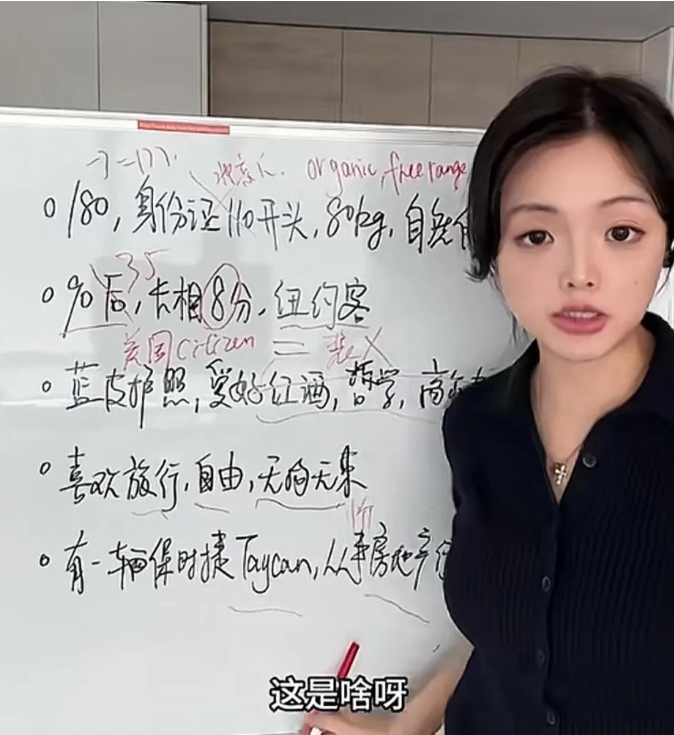 -3=177. 北京人. organic, free range
180, 身份证110开头, 80kg, 自然
35
90后, 长相8分, 纽约客
美国citizen = 装X
蓝皮护照, 爱好红酒, 哲学, 高
喜欢旅行, 自由, 无拘无束
有一辆保时捷Taycan, 从事房地产
这是啥呀